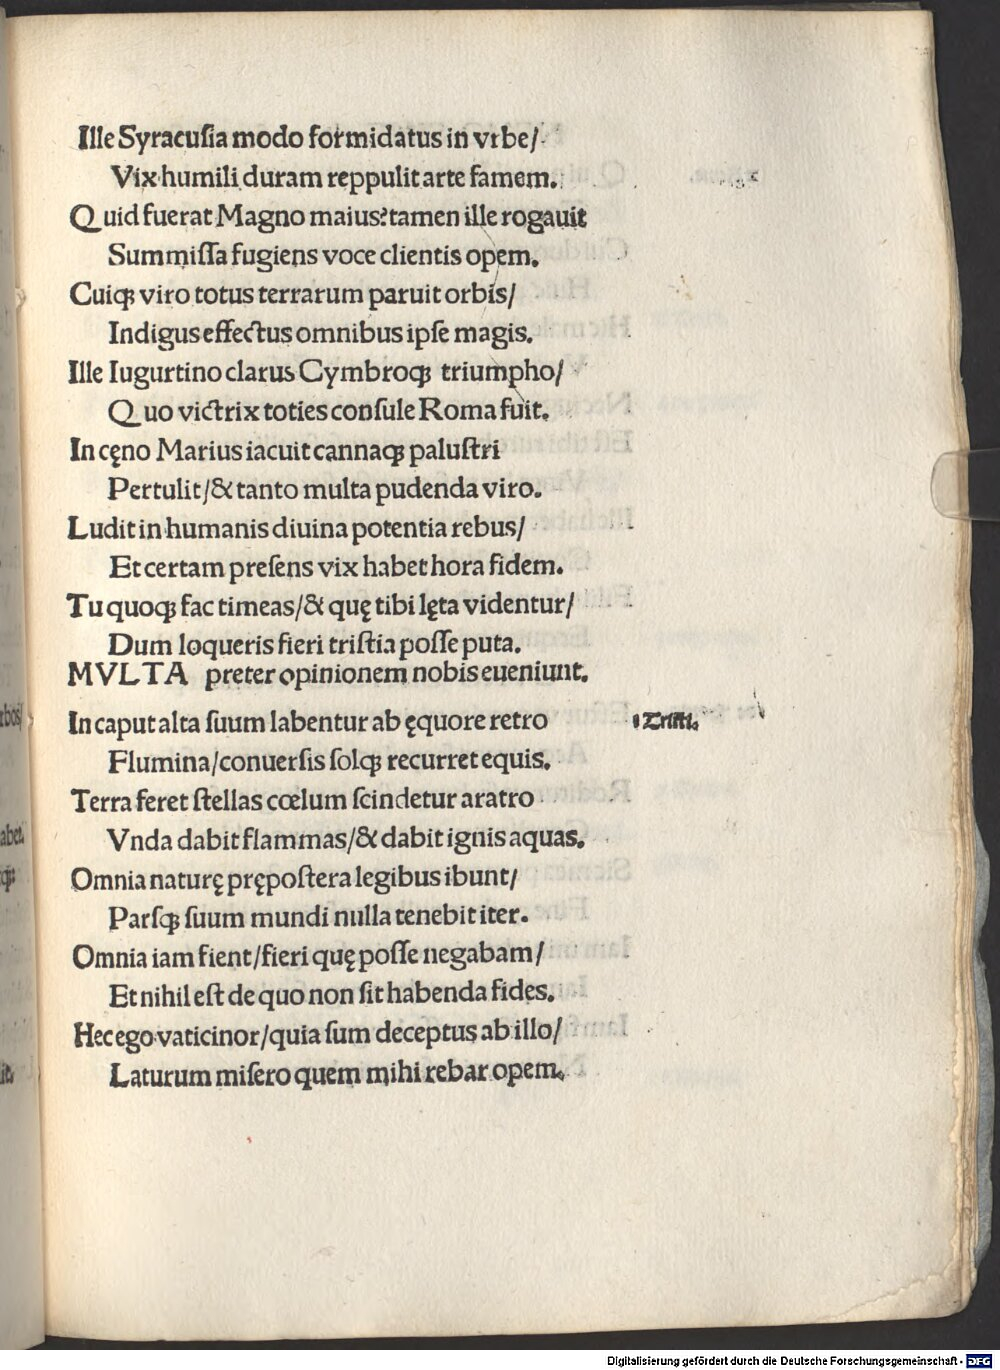 Ille Syracuſia modo formidatus in vrbe/
Vix humili duram reppulit arte famem.
Quid fuerat Magno maius? tamen ille rogauit
Summiſſa fugiens voce clientis opem.
Cuiqꝫ viro totus terrarum paruit orbis/
Indigus effectus omnibus ipſe magis.
Ille Iugurtino clarus Cymbroqꝫ triumpho/
Quo victrix toties conſule Roma fuit.
In cęno Marius iacuit cannaqꝫ paluſtri
Pertulit/& tanto multa pudenda viro.
Ludit in humanis diuina potentia rebus/
Et certam preſens vix habet hora fidem.
Tu quoqꝫ fac timeas/& quę tibi lęta videntur/
Dum loqueris fieri triſtia poſſe puta.
MVLTA preter opinionem nobis eueniunt.
In caput alta ſuum labentur ab ęquore retro
i Triſti.
Flumina/conuerſis ſolqꝫ recurret equis.
Terra feret ſtellas cœlum ſcindetur aratro
Vnda dabit flammas/& dabit ignis aquas.
Omnia naturę prępoſtera legibus ibunt/
Parſqꝫ ſuum mundi nulla tenebit iter.
Omnia iam fient/fieri quę poſſe negabam/
Et nihil eſt de quo non ſit habenda fides.
Hec ego vaticinor/quia ſum deceptus ab illo/
Laturum miſero quem mihi rebar opem.
Digitalisierung gefördert durch die Deutsche Forschungsgemeinschaft - DFG